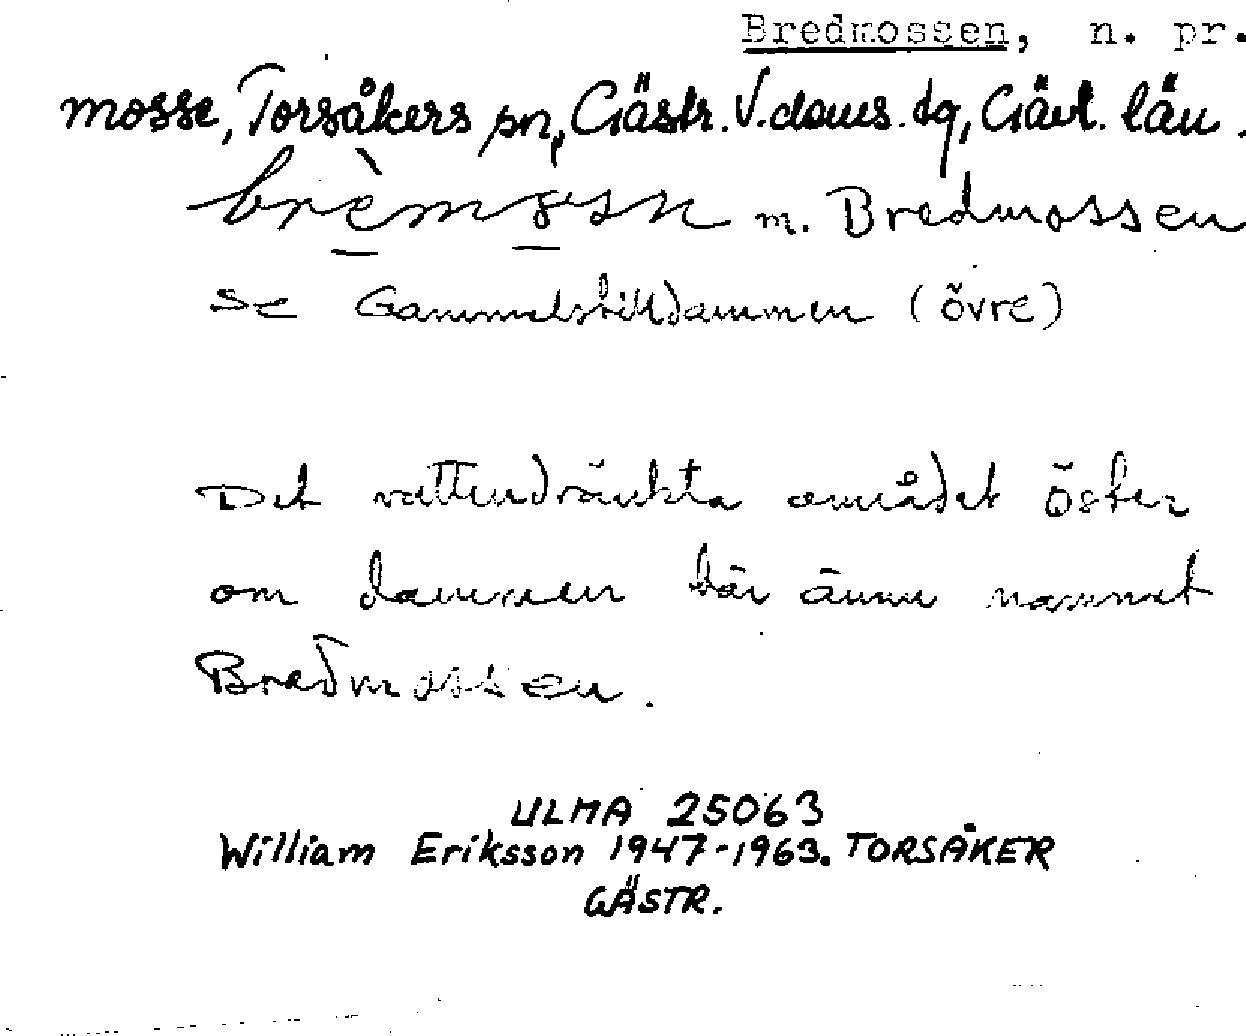 Bredmossen, n. pr.
mosse, Torsåkers sn, Gästr. V. doms. dg, Gävl. län.
brèmosn m. Bredmossen
se Gammelstilldammen (övre)
Det vattendränkta området öster
om dammen bär ännu namnet
Bredmossen.
ULMA 25063
William Eriksson 1947-1963. TORSÅKER
GÄSTR.